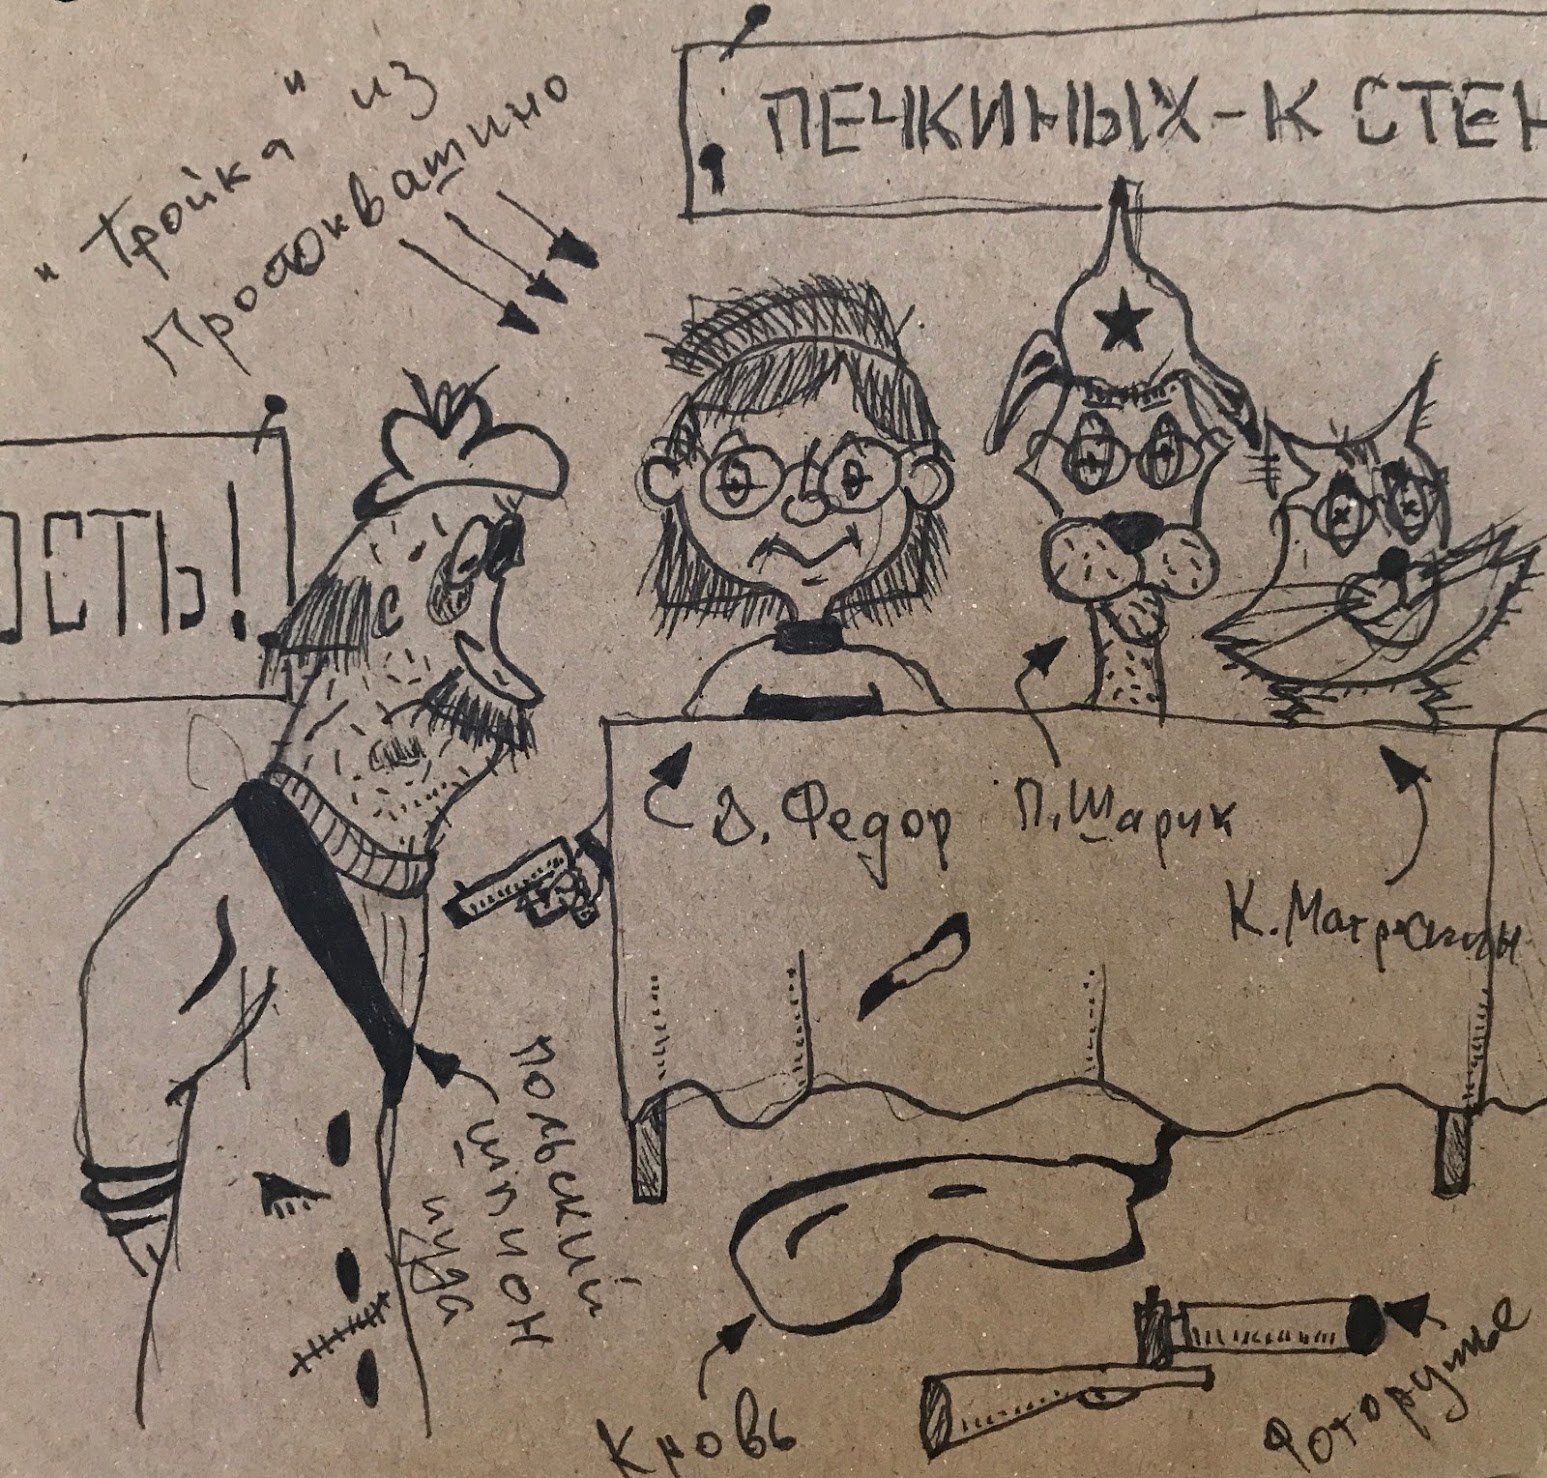 "Тройка" из
Простоквашино
ПЕЧКИНЫХ-К СТЕН
ОСТЬ!
Д. Федор
П. Шарик
К. Матроскин
польский
шпион
иуда
Кровь
Фоторужье